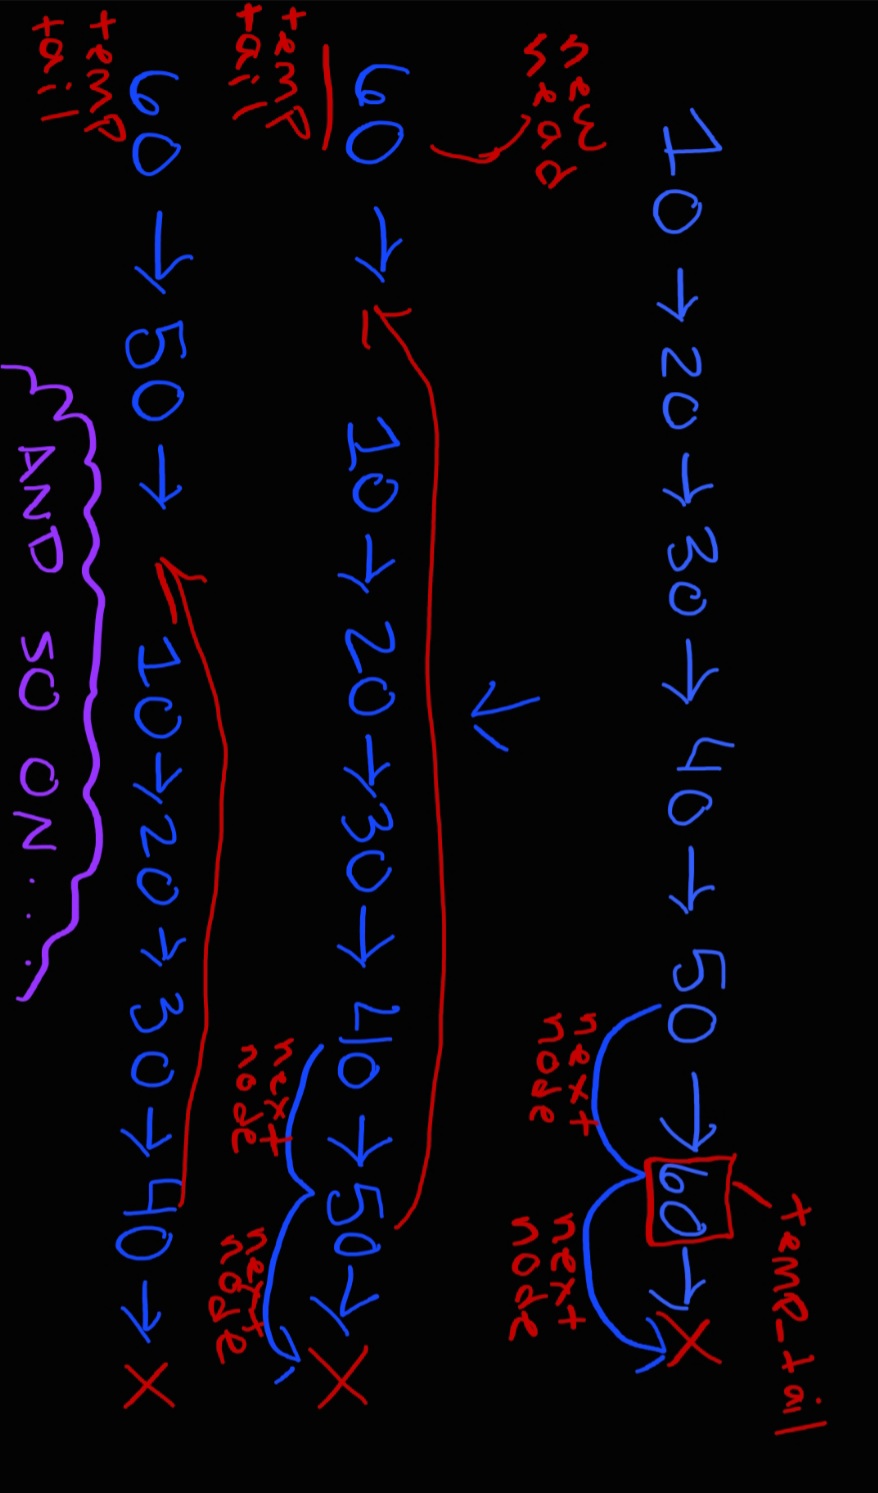 temp_tail
10 → 20 → 30 → 40 → 50 → 60 → X
next
node
next
node
new
head
60 → 10 → 20 → 30 → 40 → 50 → X
temp
tail
next
node
next
node
60 → 50 → 10 → 20 → 30 → 40 → X
temp
tail
AND SO ON....